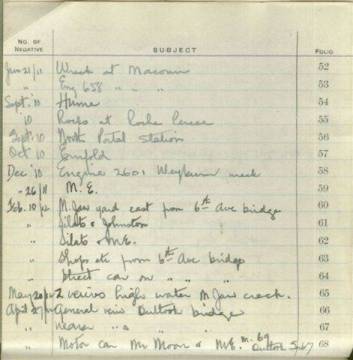 NO. OF NEGATIVE SUBJECT FOLIO
Jan 21/11 Wreck at Macoun 52
" Eng 658 " " " 53
Sept. '10 Hume 54
'10 Rocks at Roche Percee 55
Sept. '10 North Portal Station 56
Oct '10 57
Dec '10 Engine 2601 Weyburn wreck 58
- 26/11 M. E. 59
Feb. 10/12 M. Jaw yard east from 6th Ave bridge 60
" Silats & Johnston 61
" Silats & M.E. 62
" Shops etc from 6th Ave bridge 63
" Street car on " " " 64
May 2 views high water M Jaw creek. 65
April General view bridge 66
" nearer " " 67
" Motor car Mr Moon & M.E. 68